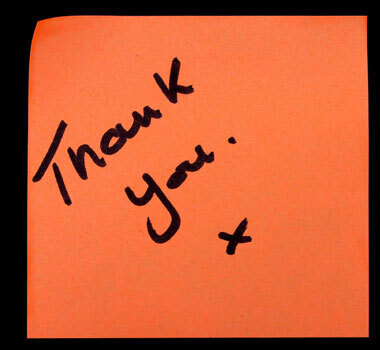 Thank
you.
x